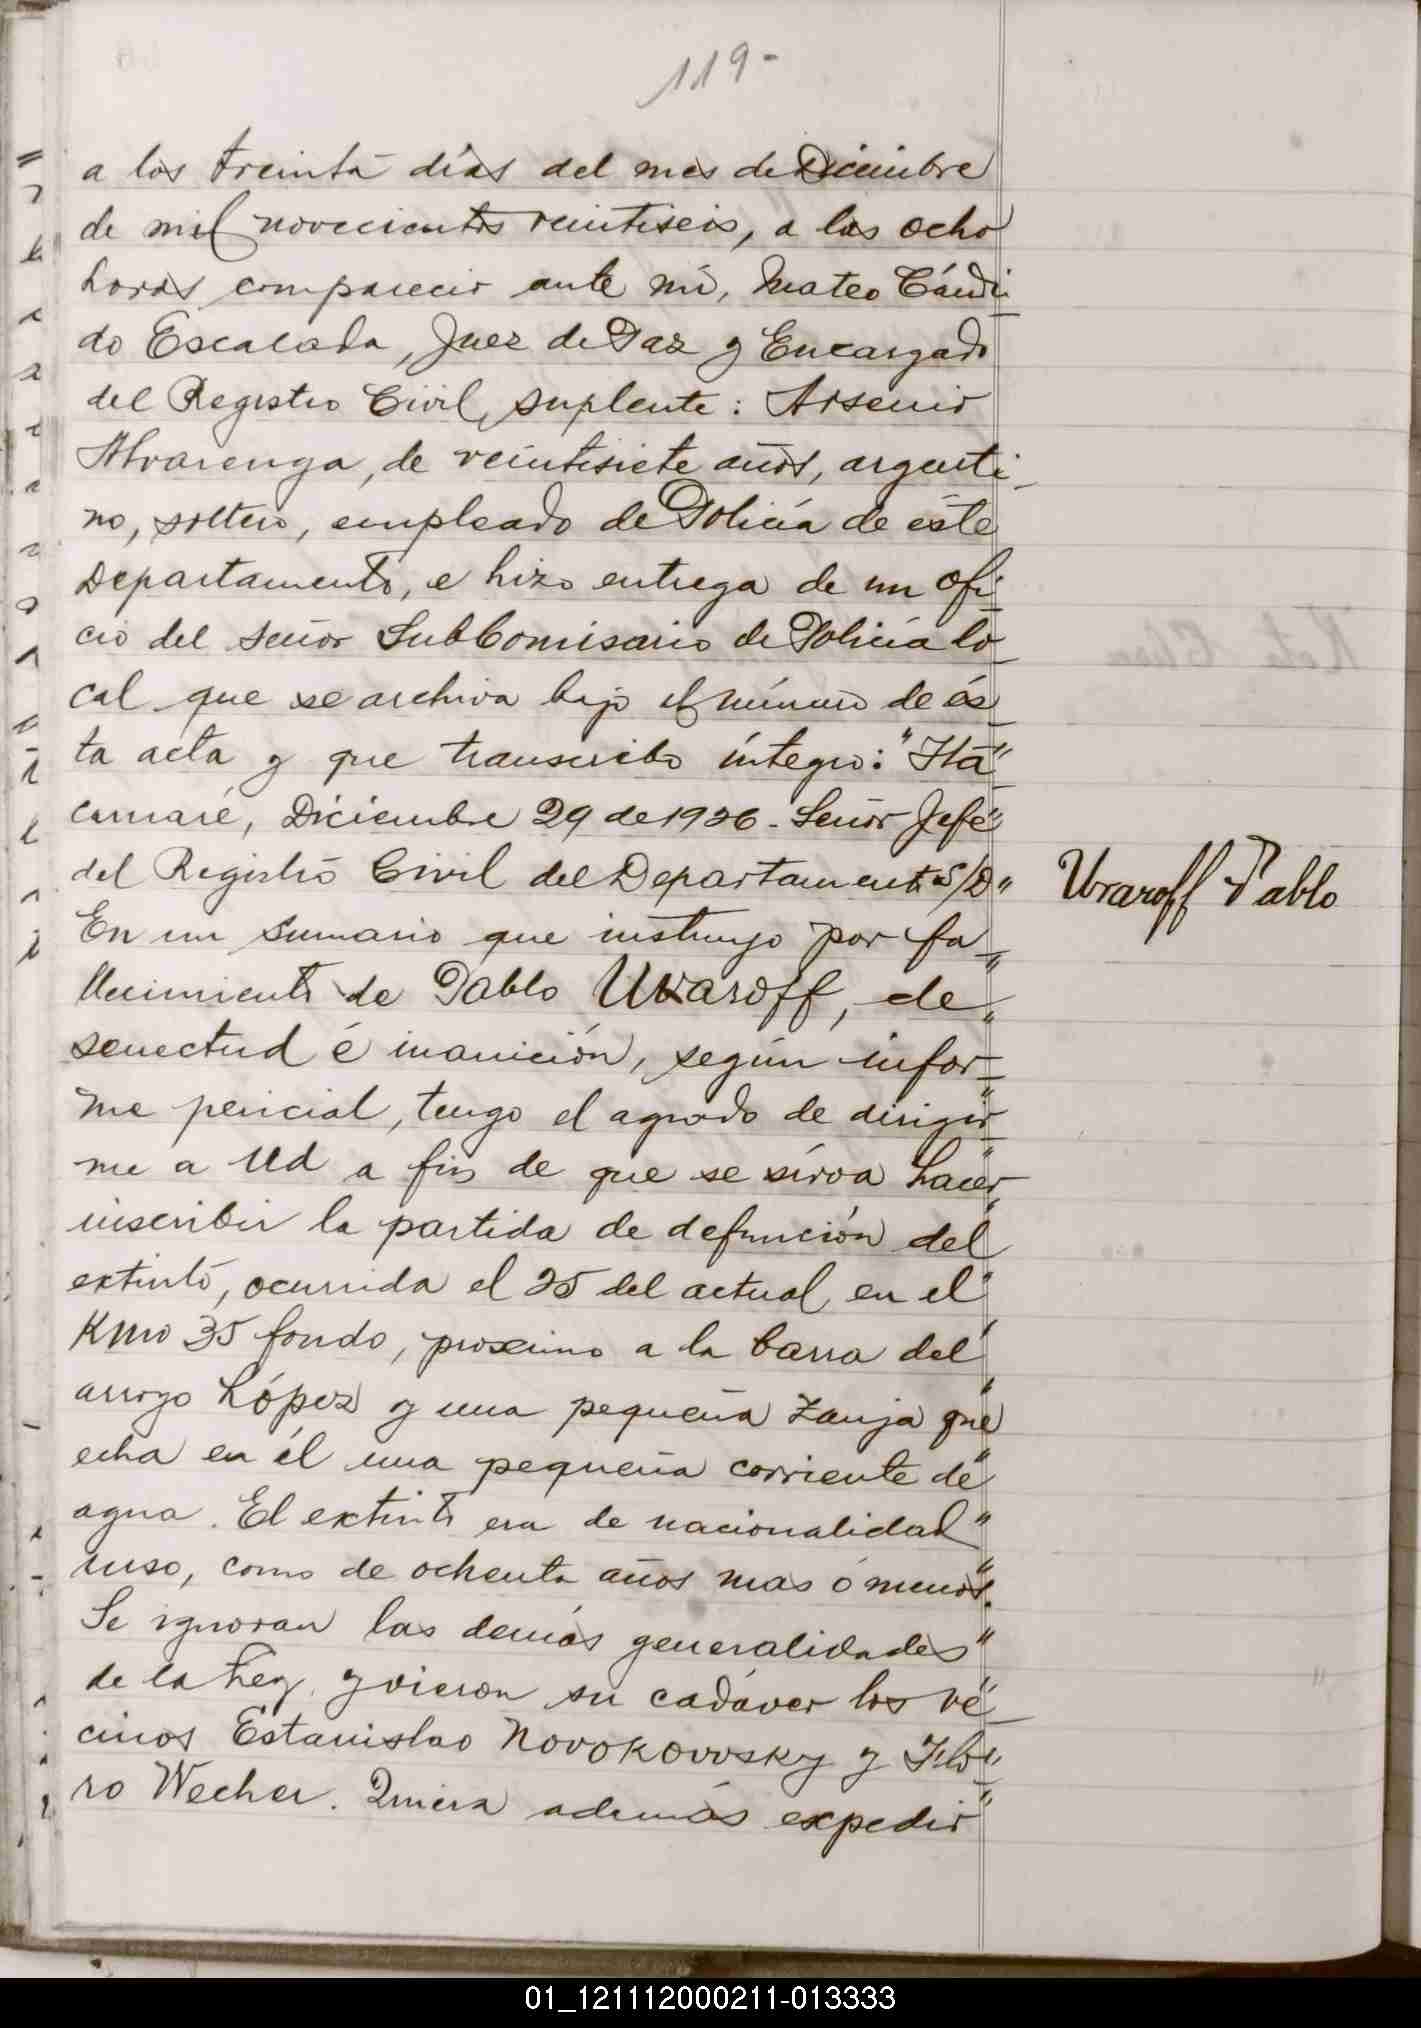 119-
a los treinta días del mes de Diciembre
de mil novecientos veintiseis, a las ocho
horas compareció ante mí, Mateo Cándi
do Escalada, Juez de Paz y Encargado
del Registro Civil, suplente: Arsenio
Alvarenga, de veintisiete años, argenti_
no, soltero, empleado de Policía de éste
Departamento, e hizo entrega de un ofi_
cio del señor SubComisario de Policía lo_
cal que se archiva bajo el número de és_
ta acta y que transcribo íntegro: "Itá"
camaré, Diciembre 29 de 1926. Señor Jefe"
del Registro Civil del Departamento S/D"
Uvaroff Pablo
En un sumario que instruyo por fa_"
llecimiento de Pablo Uvaroff, de"
senectud é inanición, según infor_"
me pericial, tengo el agrado de dirigir_"
me a Ud a fin de que se sirva hacer"
inscribir la partida de defunción del"
extinto, ocurrida el 25 del actual en el"
Kmo 35 fondo, proximo a la barra del"
arroyo López y una pequeña zanja que"
echa en él una pequeña corriente de"
agua. El extinto era de nacionalidad"
ruso, como de ochenta años mas ó menos."
Se ignoran las demás generalidades"
de la Ley. y vieron su cadáver los ve_"
cinos Estanislao Novokovvsky y
ro Wecher. Quiera además expedir"
01_121112000211-013333